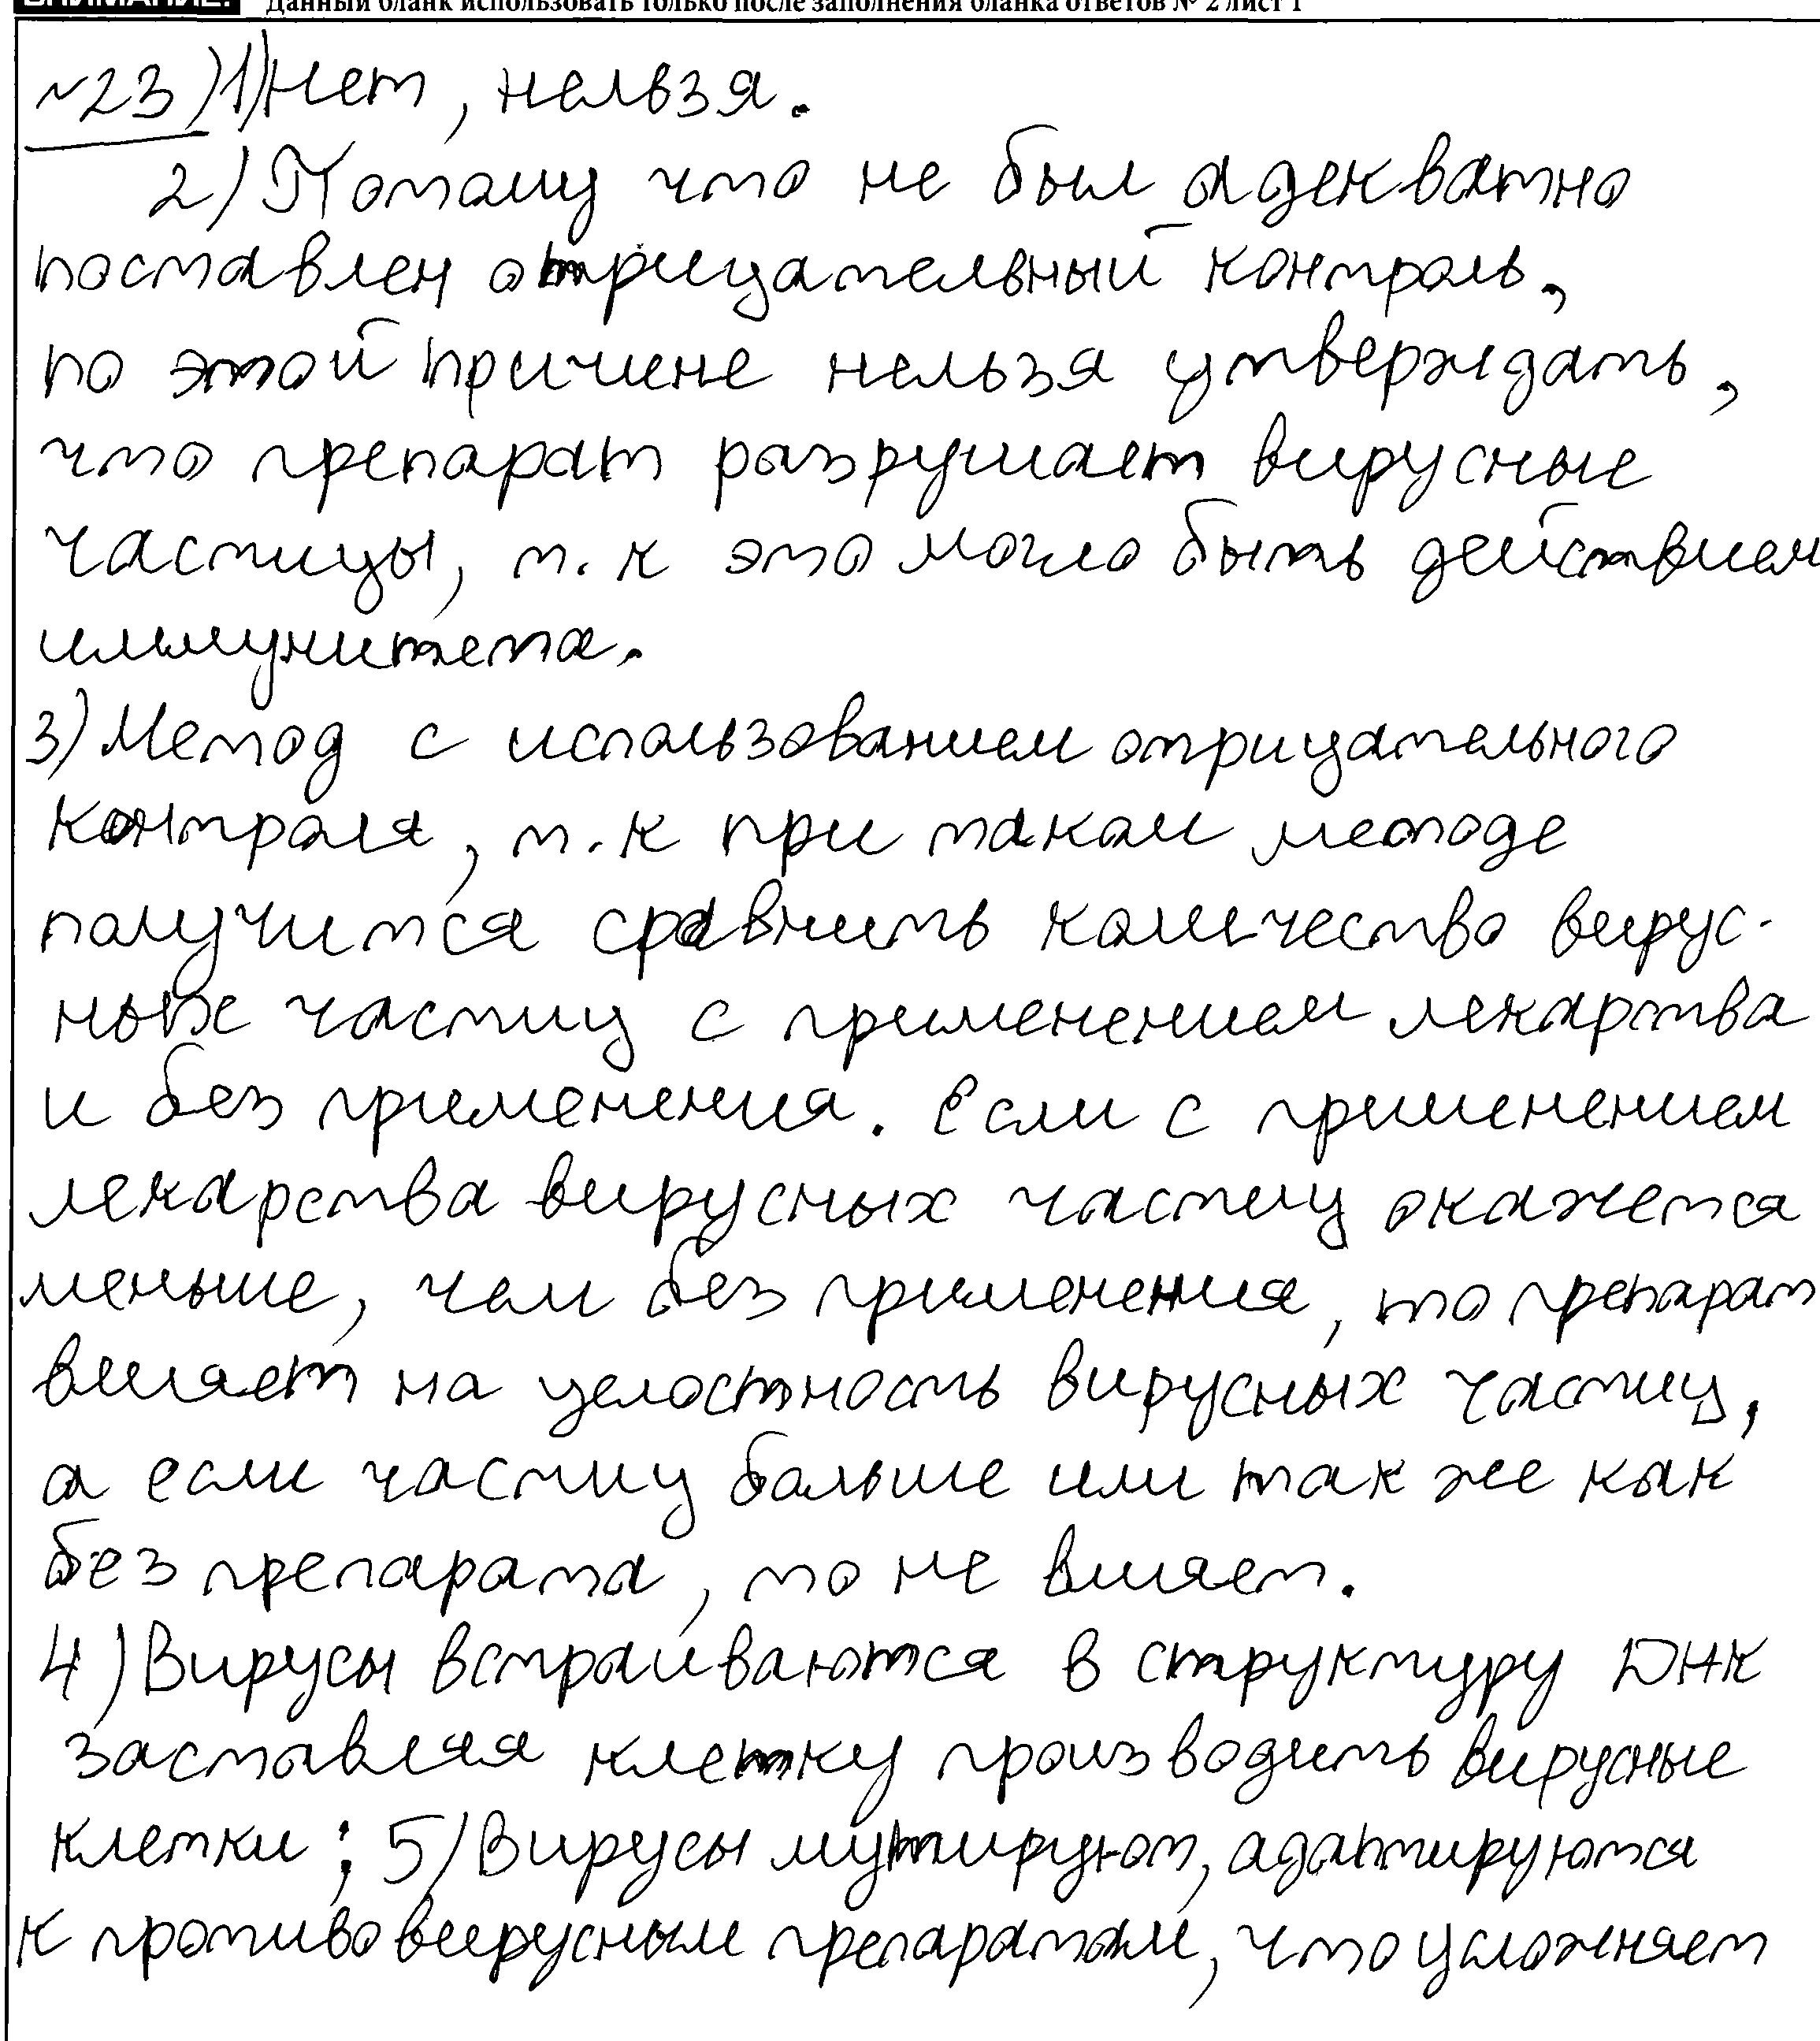 ВНИМАНИЕ! Данный бланк использовать только после заполнения бланка ответов № 2 лист 1
№23) 1) Нет, нельзя.
2) Потому что не был адекватно
поставлен отрицательный контроль,
по этой причине нельзя утверждать,
что препарат разрушает вирусные
частицы, т.к это могло быть действием
иммунитета.
3) Метод с использованием отрицательного
контроля, т.к при таком методе
получится сравнить количество вирус-
ных частиц с применением лекарства
и без применения. Если с применением
лекарства вирусных частиц окажется
меньше, чем без применения, то препарат
влияет на целостность вирусных частиц,
а если частиц больше или так же как
без препарата, то не влияет.
4) Вирусы встраиваются в структуру ДНК
заставляя клетку производить вирусные
клетки; 5) Вирусы мутируют, адаптируются
к противовирусным препаратам, что усложняет